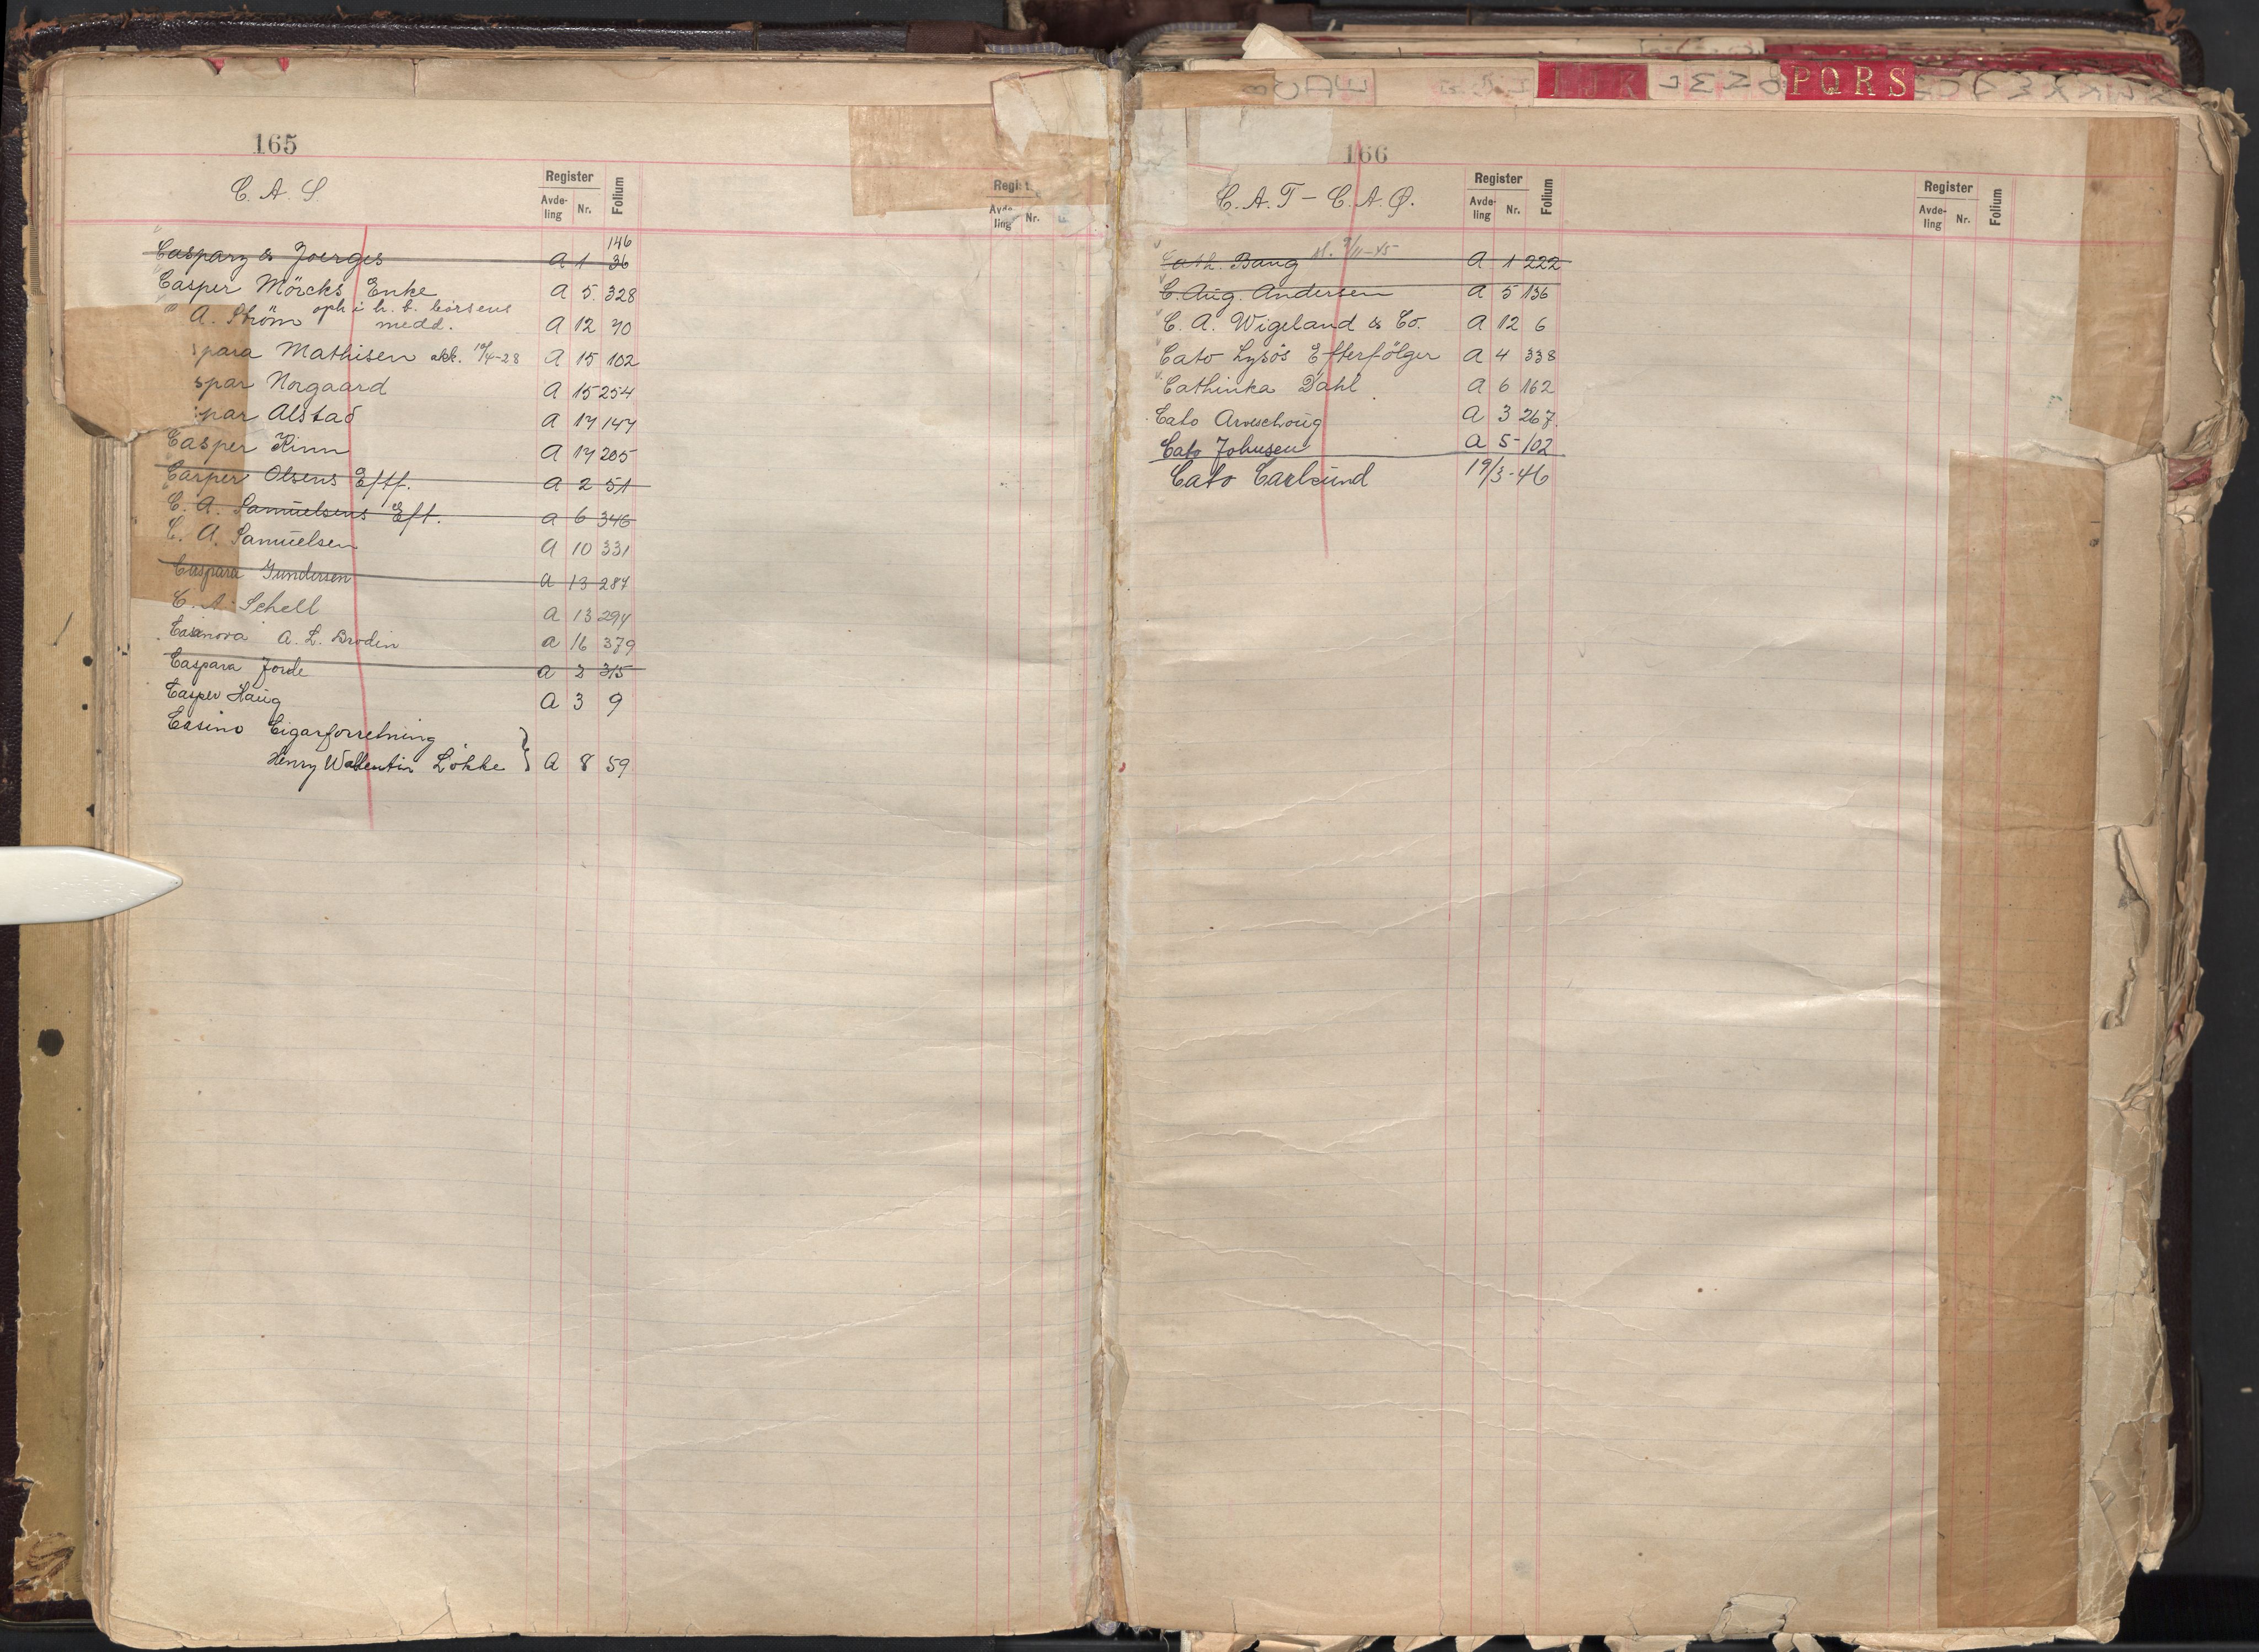 165
C. A. S.
Register
Avde-
ling
Nr.
Folium
146
Caspary & Joerges A 1 36
Casper Mörcks Enke A 5 328
oph i h. t. börsens
A. Ström medd. A 12 70
spara Mathisen akk. 10/4-28 A 15 102
spar Norgaard A 15 254
par Alstad A 17 147
Casper Rinn A 17 205
Casper Olsens Eftf. A 2 51
C. A. Samuelsens Eft. A 6 346
C. A. Samuelsen A 10 331
Caspara Gundersen A 13 287
C. A. Schell A 13 294
Casanova A. L. Brodin A 16 379
Caspara Jorde A 2 315
Casper Haug A 3 9
Casino Cigarforretning
Henry Wallentin Løkke A 8 59
Regist
Avde-
ling
Nr.
B C D E I J K L M N O P Q R S
166
C. A. T – C. A. Ø.
Register
Avde-
ling
Nr.
Folium
Cath. Bang sl. 9/11-45 A 1 222
C. Aug. Andersen A 5 136
C. A. Wigeland & Co. A 12 6
Cato Lysös Efterfölger A 4 338
Cathinka Dahl A 6 162
Cato Arveschoug A 3 267
Cato Johnsen A 5 102
Cato Carlsund 19/3-46
Register
Avde-
ling
Nr.
Folium